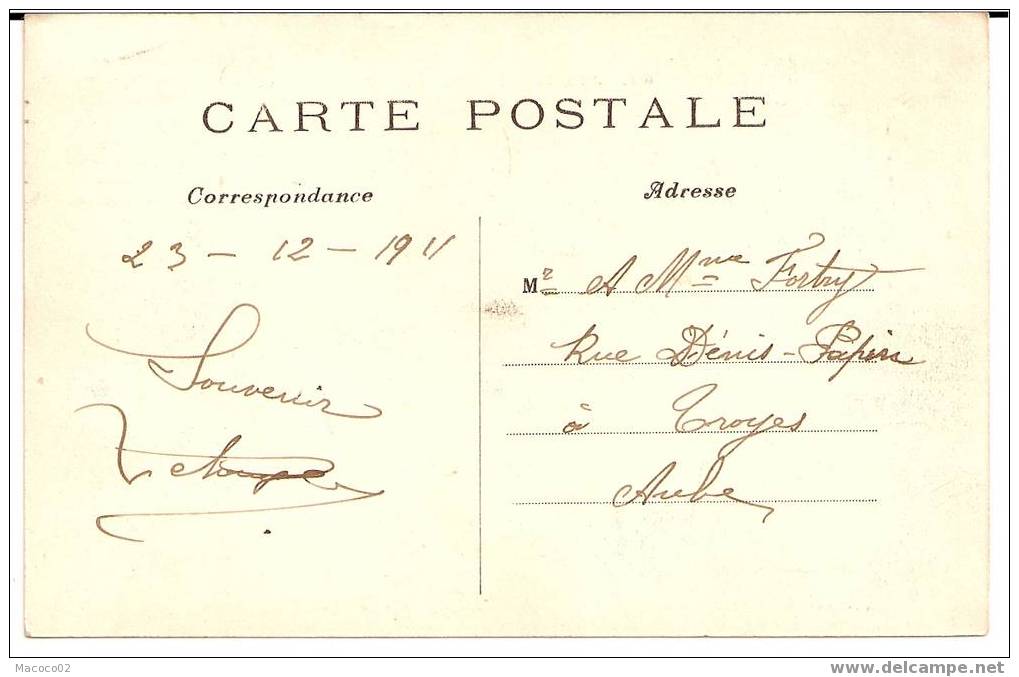 CARTE POSTALE
Correspondance
23 - 12 - 1911
Souvenir
Adresse
Mr & Mme Fortry
Rue Dénis-Papin
à Troyes
Aube
Macoco02
www.delcampe.net